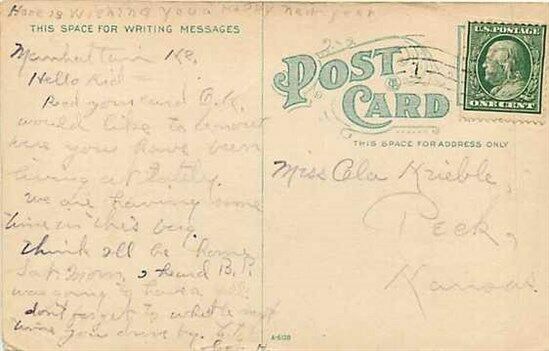 Here is Wishing you a Happy new year
THIS SPACE FOR WRITING MESSAGES
Manhattan
Hello Kid
Rec'd your card O.K.
would like to know
you have been
lately.
we are having some
time in this
think I'll be home
Sat. Morn, I heard
was going to have a
don't forget to whistle
time you drive by.
POST CARD
U.S. POSTAGE
ONE CENT
THIS SPACE FOR ADDRESS ONLY
Miss Cla Krieble
Peck,
Kansas
A-6128